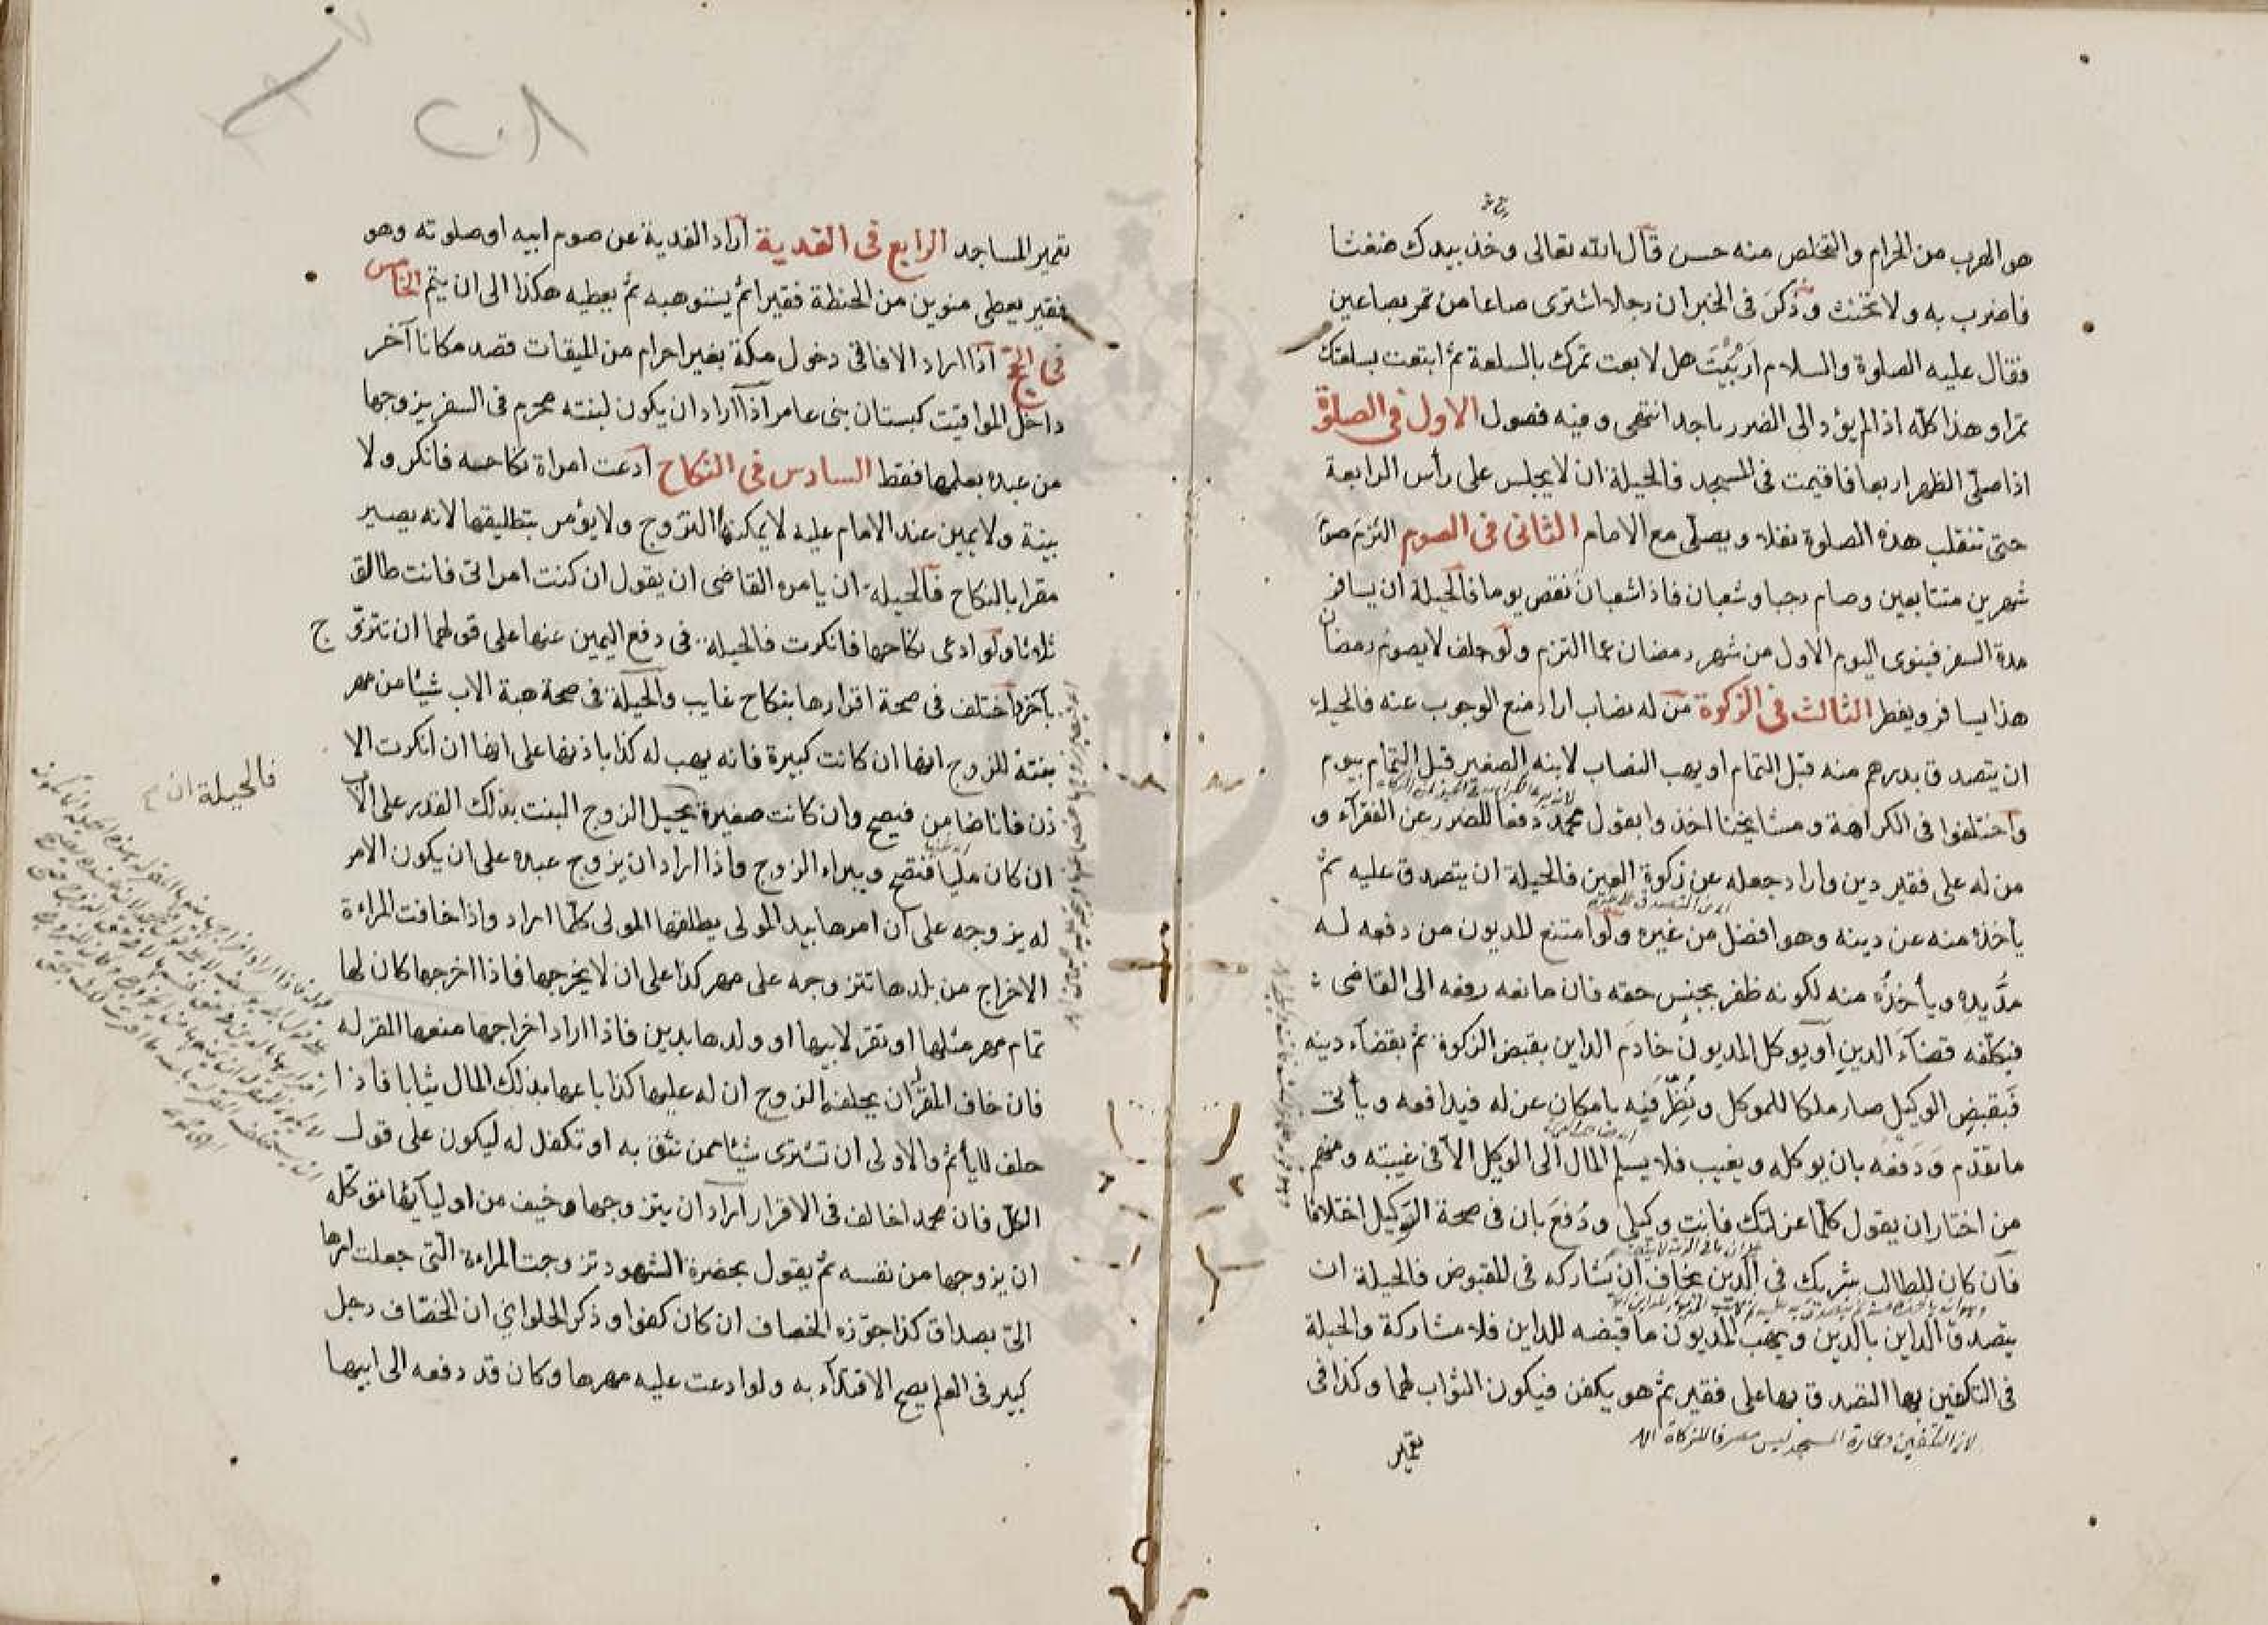 هو الهرب من الحرام والتخلص منه حسن قال الله تعالى وخذ بيدك ضغثا
فاضرب به ولا تحنث وذكر فى الخبر ان رجلا اشترى صاعا من تمر بصاعين
فقال عليه الصلوة والسلام اربيت هل لا بعت تمرك بالسلعة ثم ابتعت بسلعتك
تمرا وهذا كله اذا لم يؤد الى الضرر باحد انتهى وفيه فصول الاول فى الصلوة
اذا صلى الظهر اربعا فاقيمت فى المسجد فالحيلة ان لا يجلس على رأس الرابعة
حتى تنقلب هذه الصلوة نفلا ويصلى مع الامام الثانى فى الصوم التزم صوم
شهرين متتابعين وصام رجبا وشعبان فاذا شعبان نقص يوما فالحيلة ان يسافر
مدة السفر فينوى اليوم الاول من شهر رمضان عما التزم ولو حلف لا يصوم رمضان
هذا يسافر ويفطر الثالث فى الزكوة من له نصاب اراد منع الوجوب عنه فالحيلة
ان يتصدق بدرهم منه قبل التمام او يهب النصاب لابنه الصغير قبل التمام بيوم
واختلفوا فى الكراهة ومشايخنا اخذوا بقول محمد دفعا للضرر عن الفقرآء و
من له على فقير دين واراد جعله عن زكوة العين فالحيلة ان يتصدق عليه ثم
يأخذه منه عن دينه وهو افضل من غيره ولو امتنع المديون من دفعه له
مد يده ويأخذه منه لكونه ظفر بجنس حقه فان مانعه رفعه الى القاضى
فيكلفه قضآء الدين او يوكل المديون خادم الداين بقبض الزكوة ثم بقضآء دينه
فبقبض الوكيل صار ملكا للموكل ونظر فيه بامكان عزله فيدافعه ويأتى
ما تقدم ودفعه بان يوكله ويغيب فلا يسلم المال الى الوكيل الا فى غيبته ومنهم
من اختار ان يقول كلما عزلتك فانت وكيلى ودفع بان فى صحة التوكيل اختلافا
فان كان للطالب شريك فى الدين يخاف ان يشاركه فى المقبوض فالحيلة ان
يتصدق الداين بالدين ويهب المديون ما قبضه للداين فلا مشاركة والحيلة
فى التكفين بها التصدق بها على فقير ثم هو يكفن فيكون الثواب لهما وكذا فى
لان التكفين وعمارة المسجد ليس مصرفا للزكاة
تعمير
٢٠٨
تعمير المساجد الرابع فى الفدية اراد الفدية عن صوم ابيه او صلوته وهو
فقير يعطى منوين من الحنطة فقيرا ثم يستوهبه ثم يعطيه هكذا الى ان يتم الخامس
فى الحج اذا اراد الافاقى دخول مكة بغير احرام من الميقات قصد مكانا آخر
داخل المواقيت كبستان بنى عامر اذا اراد ان يكون لبنته محرم فى السفر يزوجها
من عبده بعلمها فقط السادس فى النكاح ادعت امراة نكاحه فانكر ولا
بينة ولا يمين عند الامام عليه لا يمكنها التزوج ولا يؤمر بتطليقها لانه يصير
مقرا بالنكاح فالحيلة ان يامره القاضى ان يقول ان كنت امراتى فانت طالق
ثلاثا ولو ادعى نكاحها فانكرت فالحيلة فى دفع اليمين عنها على قولهما ان تتزوج
بآخر واختلف فى صحة اقرارها بنكاح غايب والحيلة فى صحة هبة الاب شيئا من مهر
بنته للزوج انها ان كانت كبيرة فانه يهب له كذا باذنها على انها ان انكرت الا
ذن فانا ضامن فيصح وان كانت صغيرة يحيل الزوج البنت بذلك القدر على الاب
ان كان مليا فتصح ويبراء الزوج واذا اراد ان يزوج عبده على ان يكون الامر
له يزوجه على ان امرها بيد المولى يطلقها المولى كلما اراد واذا خافت المراءة
الاخراج من بلدها تتزوجه على مهر كذا على ان لا يخرجها فاذا اخرجها كان لها
تمام مهر مثلها او تقر لابيها او ولدها بدين فاذا اراد اخراجها منعها المقر له
فان خاف المقر ان يحلفه الزوج ان له عليها كذا باعها بذلك المال ثيابا فاذا
حلف لا يأثم والاولى ان تشترى شيئا ممن تثق به او تكفل له ليكون على قول
الكل فان محمدا خالف فى الاقرار اراد ان يتزوجها وخيف من اوليآئها توكله
ان يزوجها من نفسه ثم يقول بحضرة الشهود تزوجت المراءة التى جعلت امرها
الى بصداق كذا جوزه الخصاف ان كان كفوا وذكر الحلوانى ان الخصاف رجل
كبير فى العلم يصح الاقتدآء به ولو ادعت عليه مهرها وكان قد دفعه الى ابيها
فالحيلة ان